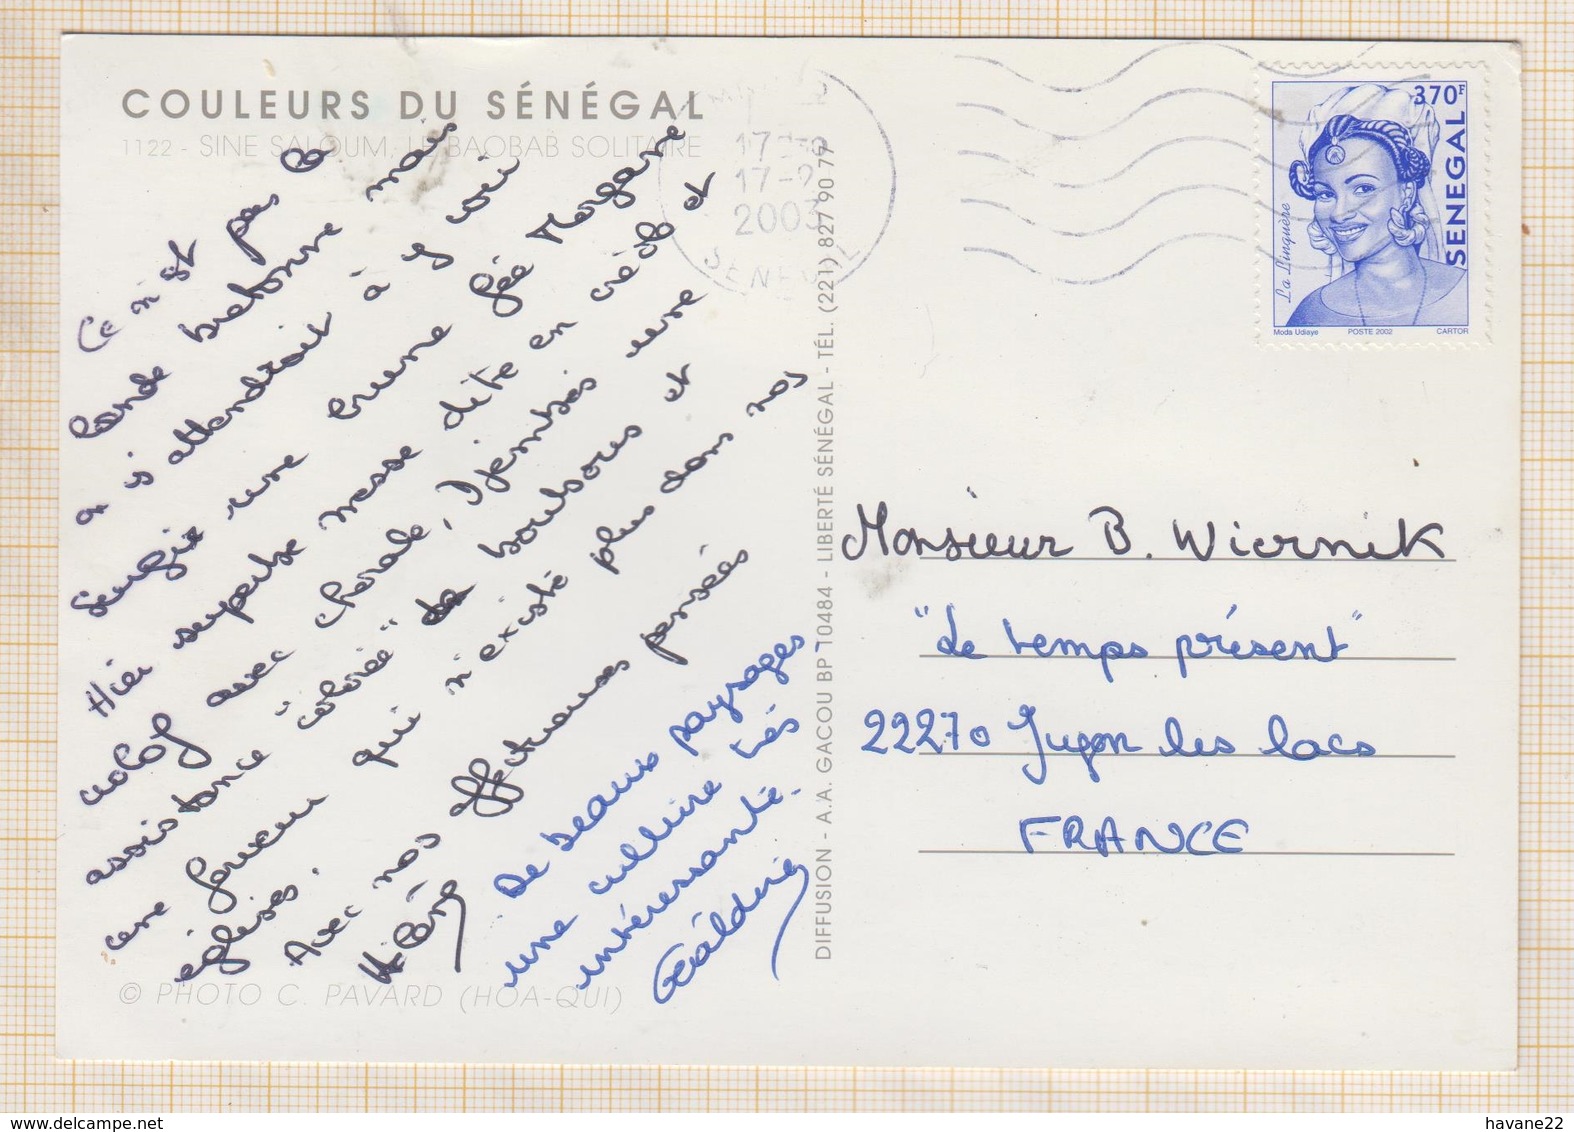 COULEURS DU SÉNÉGAL
1122 - SINE SALOUM, LE BAOBAB SOLITAIRE
Ce n'est pas la
lande bretonne mais
on s'attendrait à y voi
surgir une brune fée Morgane
Hier superbe messe dite en créole et
wolof avec chorale, Djembés une
assistance "colorée" de boubous et
une ferveur qui n'existe plus dans nos
églises.
Avec nos affectueuses pensées
De beaux paysages
une culture très
intéressante.
17-2
2003
SENEGAL
370F
SENEGAL
La Linguère
Moda Udiaye POSTE 2002 CARTOR
Monsieur B. Wiernik
"Le temps présent"
22270 Jugon les lacs
FRANCE
DIFFUSION - A.A. GACOU BP 10484 - LIBERTÉ SÉNÉGAL - TÉL. (221) 827 90 77
© PHOTO C. PAVARD (HOA-QUI)
havane22